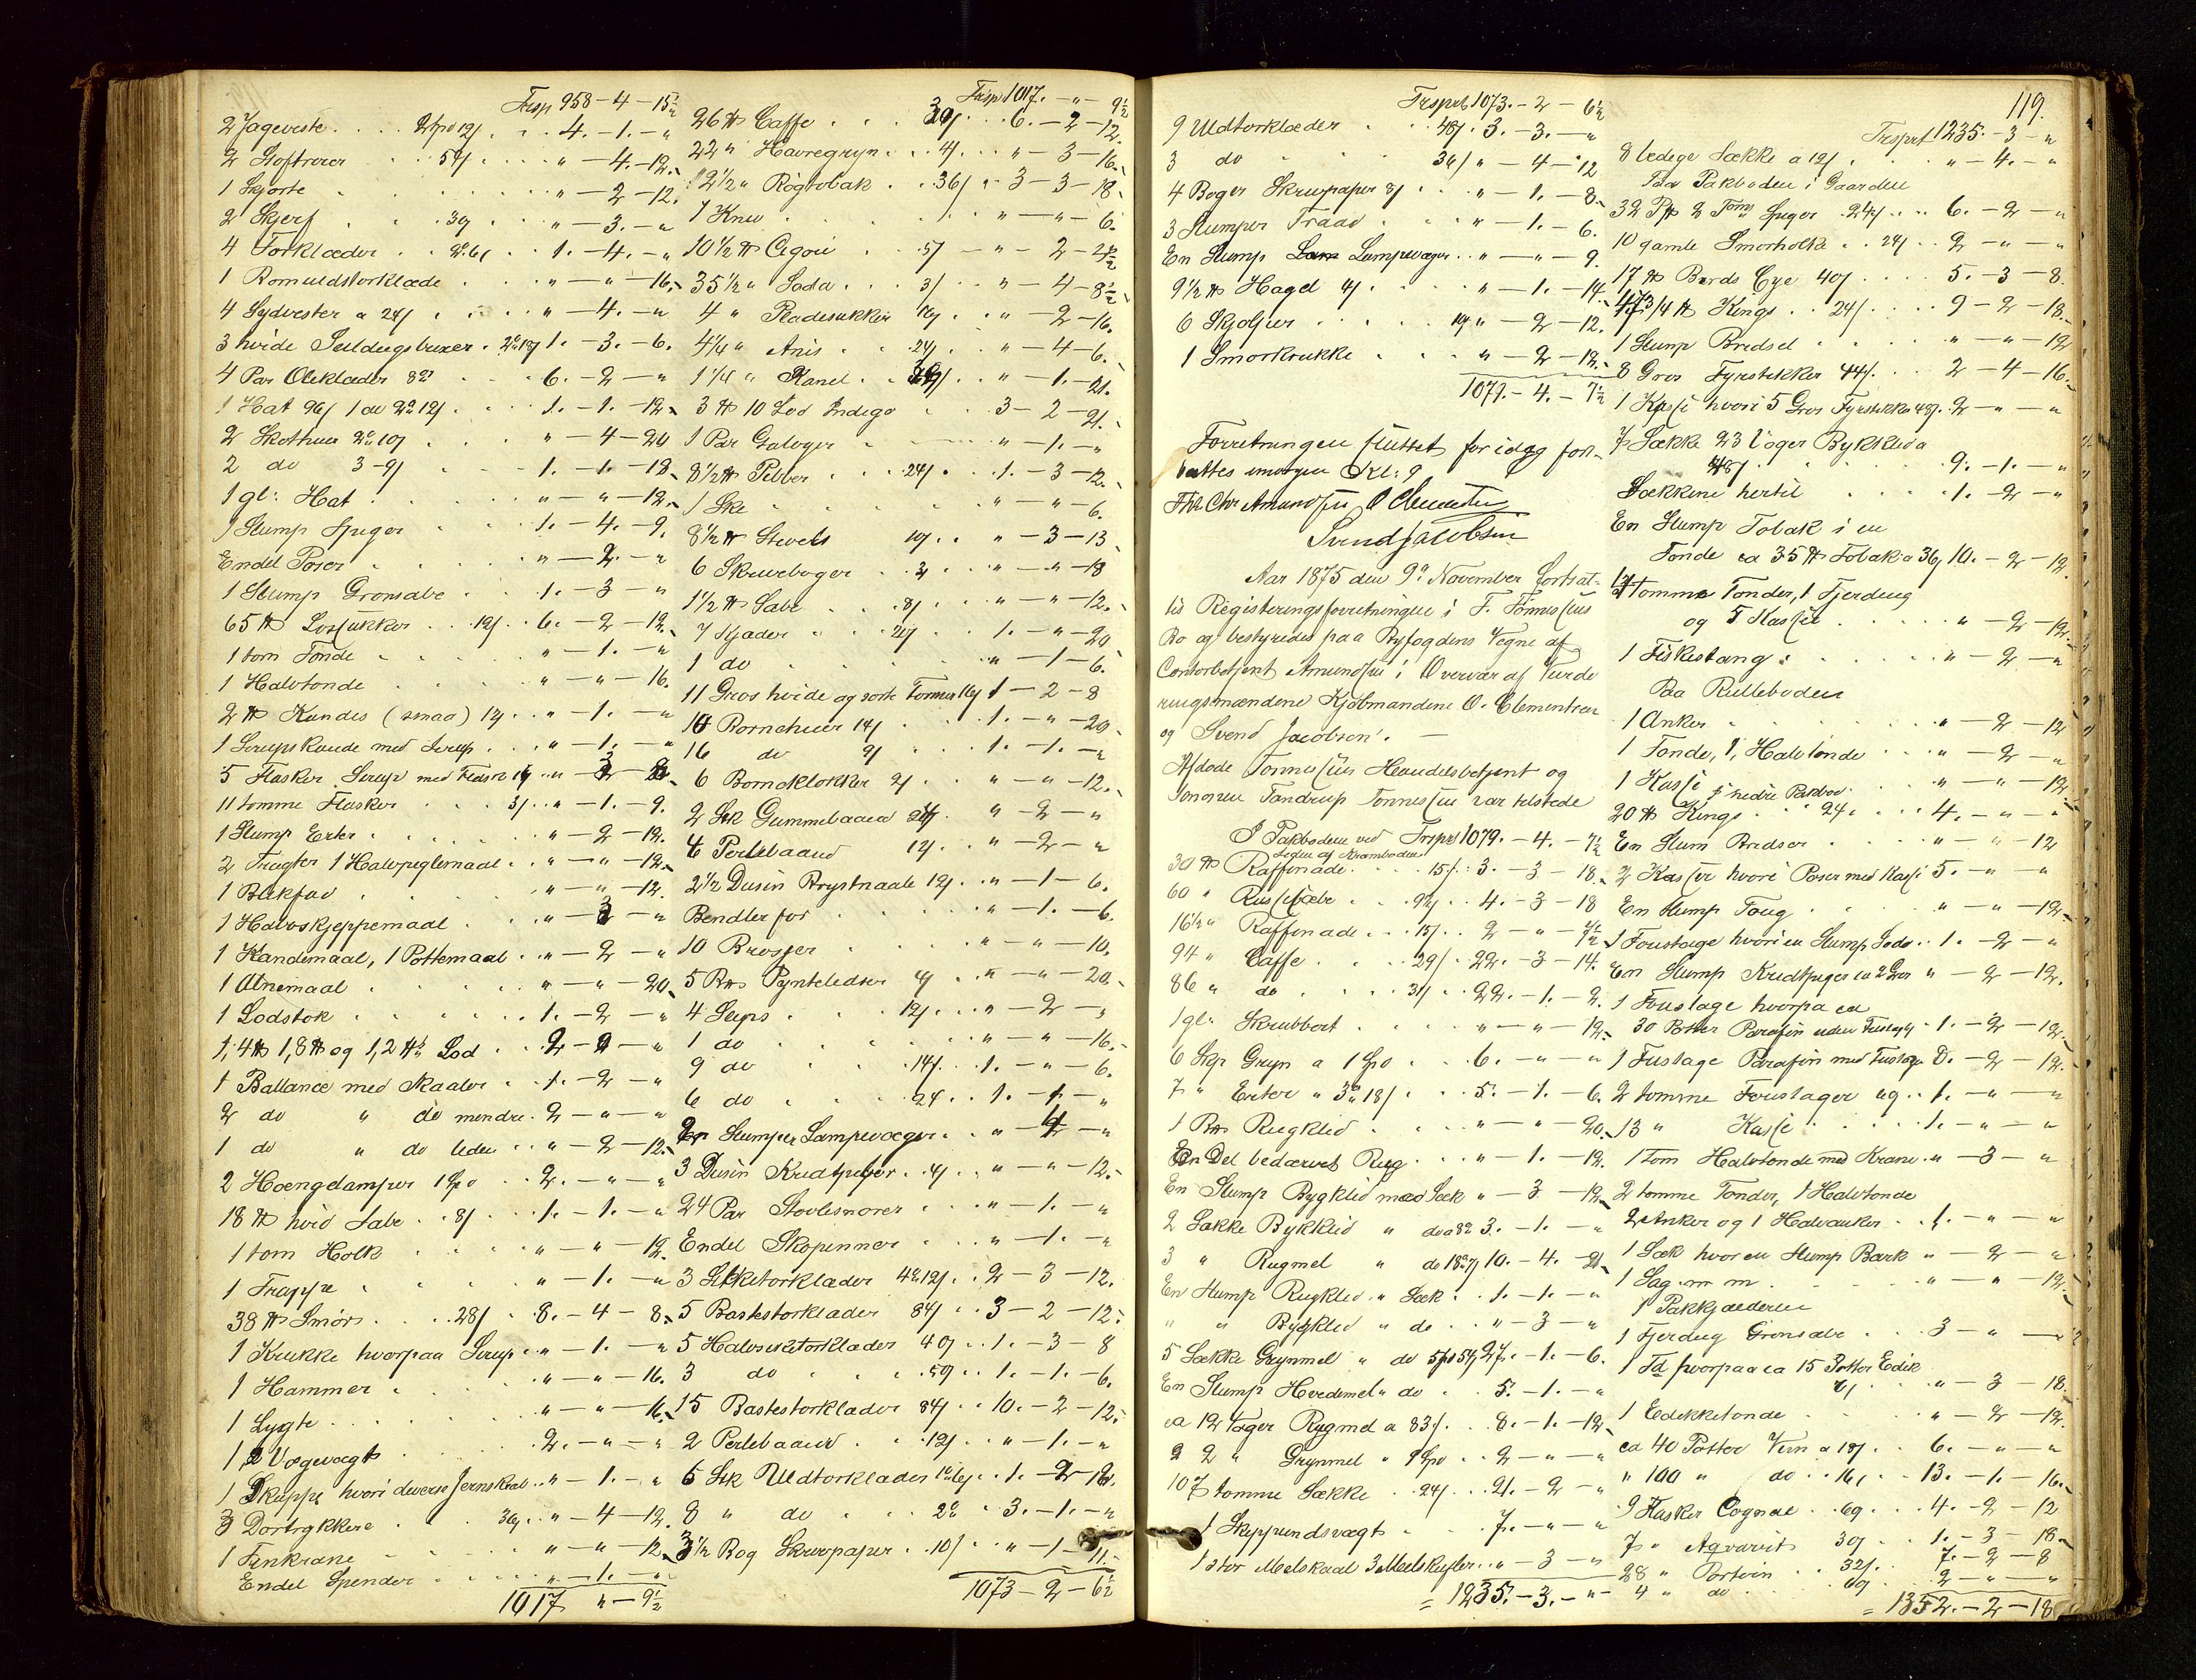 Trsp 958 - 4 - 15½
2 Jageveste . . 2 spd 12 s . . 4. - 1. - "
2 Stoftrøier . . 54 s . . " - 4. - 12.
1 Skjorte . . " - 2 - 12.
2 Skjerf . . 39 . . " - 3. - "
4 Torklæder . . 2 o 6 s . . 1. - 4. - "
1 Bomuldstorklæde . . " - " - 16.
4 Sydvester a 24 s . . " - 4. - "
3 hvide Seildugsbuxer . 2 o 18 s 1. - 3. - 6.
4 Par Olieklæder 8 o . . 6. - 2 - "
1 Hat 96 s 1 do 2 o 12 s . . 1. - 1. - 12.
2 Skothuer 2 o 10 s . . " - 4 - 20
2 do 3-9 s . . 1. - 1. - 18.
1 gl: Hat . . " - " - 12.
1 Slump Spiger . . 1. - 4. - 9.
Endel Poser . . " - 2. - "
1 Slump Grønsabe . . 1. - 3 - "
65 ℔ Lossukker . . 12 s . . 6. - 2 - 12.
1 tom Tønde . . " - 1. - "
1 Halvtønde . . " - " - 16.
2 ℔ Kandis (smaa) 12 s . . " - 1. - "
1 Sirupskande med Sirup . . " - 1. - "
5 Flasker Sirup med Flasker
11 tomme Flasker . . 3 s . . " - 1. - 9.
1 Slump Erter . . " - 2 - 12.
2 Tragter 1 Halvpeglemaal . . " - " - 12.
1 Blikfad . . " - " - 12.
1 Halvskjeppemaal
1 Kandemaal, 1 Pottemaal . . " - 2 - "
1 Alnemaal . . " - " - 20.
1 Lodstok . . 1. - 2 - "
1, 4 ℔ 1, 8 ℔ og 1, 2 ℔ Lod . . 2 - 2 - "
1 Ballance med Skaaler . . 1. - 2 - "
2 do " do mindre . 2 - " - "
1 do " do liden . . " - 2 - 12.
2 Hængelamper 1 Spd . . 2. - " - "
18 ℔ hvid Sabe . . 8 s . . 1. - 1. - "
1 tom Holk . . " - " - 12.
1 Trappe . . " - 1. - "
38 ℔ Smør . . 28 s . . 8. - 4 - 8.
1 Krukke hvorpaa Sirup . . " - 1. - "
1 Hammer . . " - " - 16.
1 Lygte . . " - " - 16.
1, 2 Vogevægt . . 2. - " - "
1 Skuppe hvori diverse Jernskrab . . " - 1. - "
3 Dørtrykkere . . 36 s . . " - 4 - 12.
1 Tinkrane . . " - " - 12.
Endel Spender . . " - 1. - "
1017 " - 9½
Trsp 1017. - " - 9½
26 ℔ Caffe . . 6. - 2 - 12.
22 " Havregryn . . 4 s . . " - 3 - 16.
12½ " Røgtobak . . 36 s . . 3 - 3 - 18.
1 Kniv . . " - " - 6.
10½ ℔ Cigori . . 5 s . . " - 2 - 4½
35½ " Soda . . 3 s . . " - 4 - 8½
4 " Pladesukker 16 s . . " - 2 - 16.
4¼ " Anis . . 24 s . . " - 4 - 6.
1¼ " Kanel . . " - 1. - 21.
3 ℔ 10 Lod Indigo . . 3 - 2 - 21.
1 Par Galoger . . " - 1. - "
8½ ℔ Pebber . . 24 s . . 1. - 3 - 12.
1 Ske . . " - " - 6.
8½ ℔ Stivels 10 s . . " - 3 - 13.
6 Skrivebøger . . 3 s . . " - " - 18
1½ ℔ Sabe . . 8 s . . " - " - 12.
7 Kjæder . . 20 s . . 1. - " - 20
1 do . . " - 1 - 6.
11 Gros hvide og sorte 1 - 2 - 8
10 Børnehuer 14 s . . 1. - " - 20.
16 do 9 s . . 1. - 1. - "
6 Børneklokker 2 s . . " - " - 12.
2 Stk Gummibaand 24 s . " - 2 - "
6 Perlebaand 12 s . . " - 2 - "
2½ Dusin Brystnaale 12 s . . " - 1 - 6.
Bendler for . . " - 1. - 6.
10 Brosjer . . " - " - 10.
5 Brs Pyntelidser 4 s . . " - " - 20.
4 Slips . . 12 s . . " - 2 - "
1 do . . " - " - 16.
9 do . . 14 s . . 1. - " - 6.
6 do . . 24 . . 1. - 1. - "
En Slumper Lampevæger . . " - 4 - "
3 Dusin Kridtpiber . . 4 s . . " - " - 12.
24 Par Støvlesnorer . . " - 1. - "
Endel Skopinner . . " - 1. - "
3 Silketorklæder 4 o 12 s . . 2 - 3 - 12.
5 Bastestorklæder 84 s . . 3 - 2 - 12.
5 Halvsilketorklæder 40 s . . 1. - 3 - 8
3 do . . 50 . . 1. - 1. - 6.
15 Bastestorklæder 84 s . . 10. - 2 - 12.
2 Perlebaand . . 12 s . . " - 1. - "
6 Stk Uldtorklæder 1 o 16 s . . 1. - 2 - 18.
8 " do . . 2 o . . 3. - 1. - "
3½ Bog Skrivpapir . . 10 s . . " - 1 - 11.
1073 - 2 - 6½
Trsprt 1073. - 2 - 6½
9 Uldtorklæder . . 48 s . 3. - 3. - "
3 do . . 36 s " - 4 - 12
4 Bøger Skrivpapir 8 s . . " - 1. - 8.
3 Slumper Traad . . " - 1. - 6.
En Slump Lampevæger . . " - " - 9.
9½ ℔ Hagel 4 s . . " - 1. - 14.
6 Skjoljer . . 10 s " - 2 - 12.
1 Smørkrukke . . " - 2 - 12.
1079. - 4. - 7½
Forretningen sluttet for idag fort-
sættes imorgen Kl: 9
Fhr Chr Amundsen O Clementsen
Svend Jacobsen
Aar 1875 den 9de November fortsat-
tes Registeringsforretningen i F. Tønnessens
Bo og bestyredes paa Byfogdens Vegne af
Contorbetjent Amundsen i Overvær af Vurde
ringsmændene Kjøbmændene O. Clementsen
og Svend Jacobsen. —
Afdøde Tønnessens Handelsbetjent og
Sønnen Tandrup Tønnessen var tilstede
I Pakboden ved Trsprt 1079. - 4. - 7½
Siden af Kramboden
30 ℔ Raffinade . . 15 s . . 3. - 3 - 18.
60 " . . 9½ s . . 4. - 3 - 18
16½ " Raffinade . . 15 s . . 2 - " - 7½
94 " Caffe . . 29 s . . 22. - 3 - 14.
86 " do . . 31 s . . 22. - 1. - 2.
1 gl: Skrubbert . . " - " - 12.
6 Skp Gryn a 1 Spd . . 6. - " - "
7 " Erter " 3 o 18 s . . 5. - 1. - 6.
1 Brs Rugklid . . " - " - 20.
En Del bedærvet Rug . . " - 1. - 12.
En Slump Bygklid med Sæk " - 3 - 12.
2 Sække Bykklid " do a 8 o 3. - 1. - "
3 " Rugmel " do 10. - 4. - 21.
En Slump Rugklid " Sæk . . 1. - 1. - "
" " Bygklid " do . . " - 3 - "
5 Sække Grynmel " do 27. - 1. - 6.
En Slump Hvedemel " do . . 5. - 1. - "
ca 12 Voger Rugmel a 83 s . . 8. - 1. - 12.
" 2 " Grynmel " 1 Spd . . 2 - " - "
107 tomme Sække . . 24 s . . 21. - 2 - "
1 Skippundsvægt . . 7. - " - "
1 stor Meelskaal 3 Meelskufler . . " - 3 - "
= 1235. - 3. - "
119.
Trsprt 1235. - 3 - "
8 ledige Sække a 12 s . . " - 4. - "
Paa Pakboden i Gaarden
32 P℔ 2 Toms Spiger . 24 s . . 6. - 2 - "
10 gamle Smørholke . . 24 s . . 2 - " - "
17 ℔ Birds Eye 40 s . . 5. - 3 - 8.
47 3/4 ℔ Kings . . 24 s . . 9 - 2 - 18.
1 Slump Bredsel . . " - " - 12
8 Gros Fyrstikker 44 s . . 2 - 4 - 16.
1 Kasse hvori 5 Gros Fyrstikker 48 s . 2 - " - "
7 Sække 23 Voger Bykklid a
48 s . . 9. - 1. - "
Sækkene hertil . . 1. - 2 - "
En Slump Tobak i en
Tønde ca 35 ℔ Tobak a 36, 10. - 2 - 12.
tomme Tønder, 1 Fjerding
og 5 Kasser . . " - 2 - 12.
1 Fiskestang: . . " - 2 - "
Paa Rulleboden
1 Anker . . " - 2 - 12
1 Tønde, 1, Halvtønde . . " - 2 - "
1 Kasse . . " - " - 12
i nedre Pakbod.
20 ℔ Kings . . 24 s . . 4. - " - "
En Slum Bredsel . . " - " - 12
2 Kasser hvori Poser med Kasse 5. - " - "
En Slump Toug . . " - " - 12.
1 Foustage hvori en Slump Soda . . 1. - 2 - "
En Slump Kridtpiper ca 2 Gros " - 2 - 12.
1 Foustage hvorpa ca
30 Potter Parafin uden Fustage . 1. - 2 - 12.
1 Fustage Parafin med Fustage 8. - 2 - 12.
2 tomme Foustager . . 1. - " - "
13 " Kasse . . 1. - " - "
1 tom Halvtønde med Krane . " - 3 - "
2 tomme Tønder, 1 Halvtønde
2 Anker og 1 Halvanker . . 1. - " - "
1 Sæk hvor en Slump Bark " - 2 - "
1 Sag m m . . " - " - 12.
I Pakkjælderen
1 Fjerding Grønsabe . . 3 - " - "
1 Td hvorpaa ca 15 Potter Edik
6 s . . " - 3 - 18.
1 Edikketønde . . " - 2 - 12.
ca 40 Potter Vin a 18 s . . 6. - " - "
" 100 " do . . 16 s . . 13. - 1. - 16.
9 Flasker Cognac . . 60 . . 4. - 2 - 12
7 " Aqvavit 30 . . 1. - 3 - 18.
28 " Portvin . . 32 s . . 7. - 2 - 8
4 " do . . 60 . . 2 - " - "
= 1352. - 2 - 18